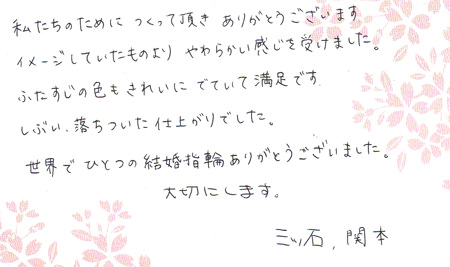 私たちのために つくって頂き ありがとうございます
イメージしていたものより やわらかい感じを受けました。
ふたすじの色もきれいに でていて満足です
しぶい、落ちついた仕上がりでした。
世界で ひとつの結婚指輪ありがとうございました。
大切にします。
三ッ石、関本